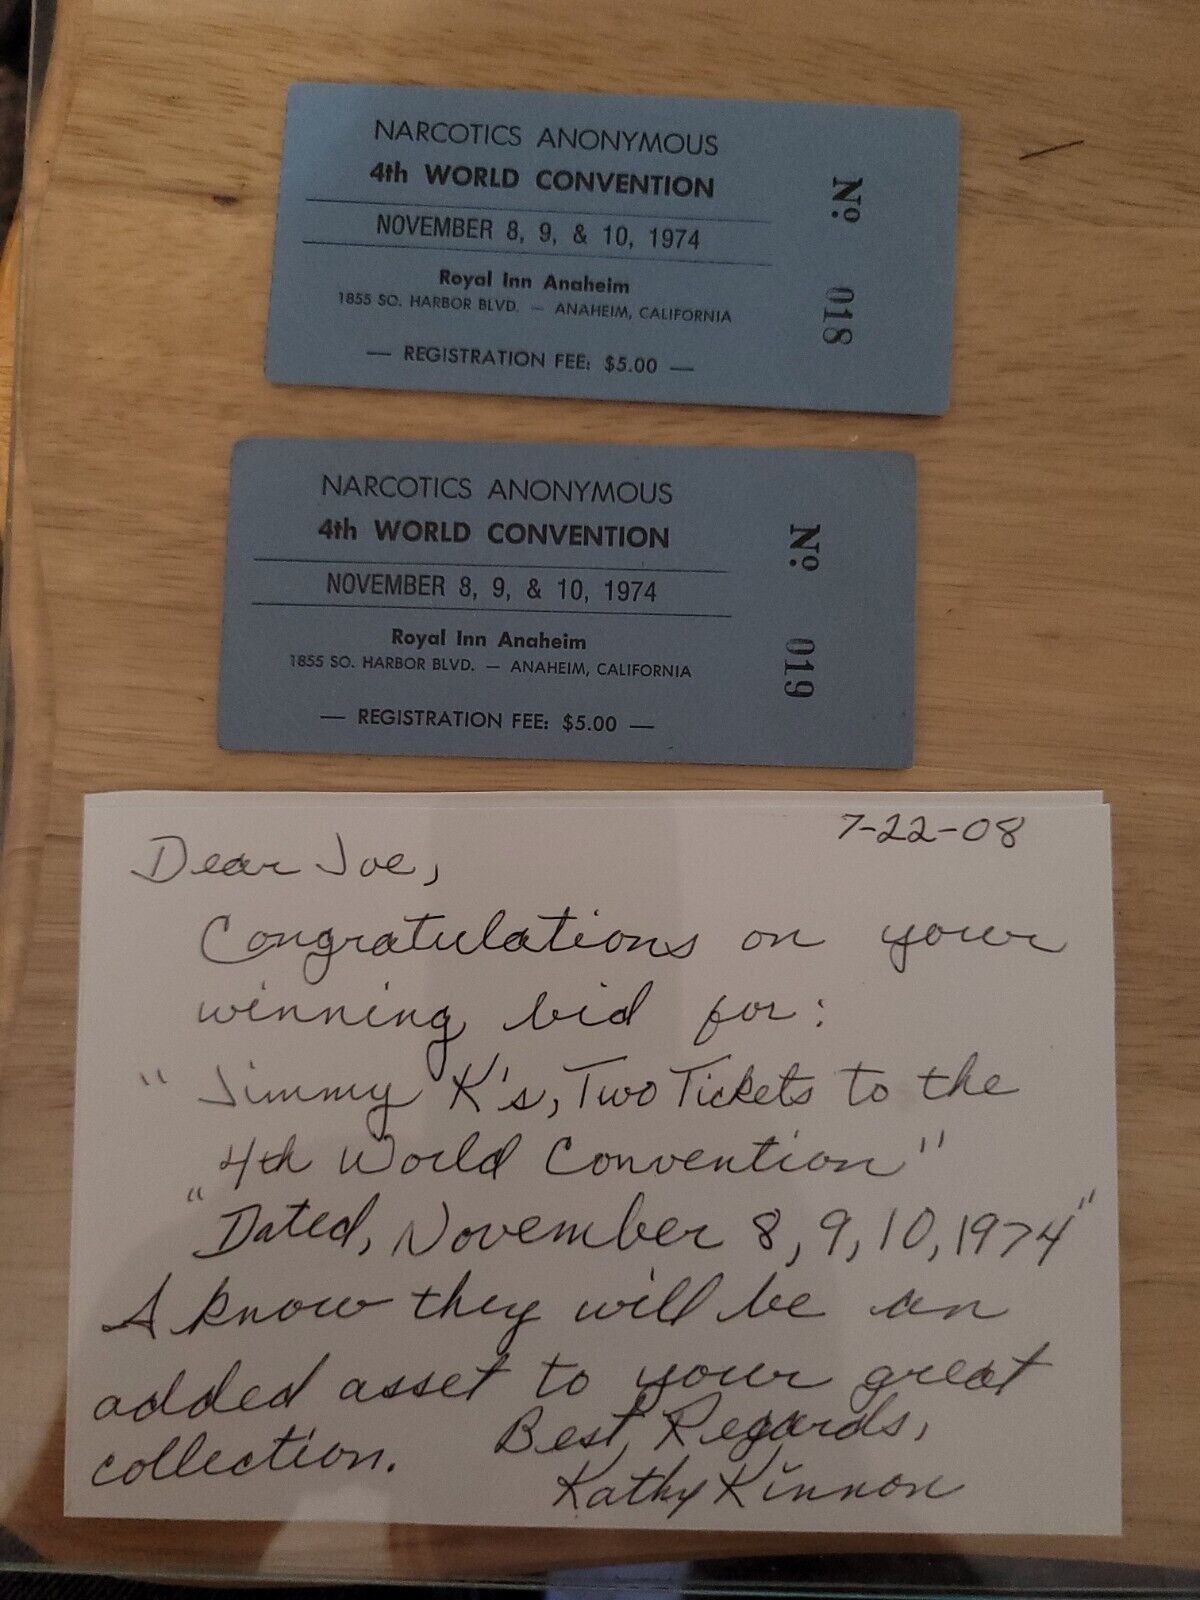 NARCOTICS ANONYMOUS
4th WORLD CONVENTION
NOVEMBER 8, 9, & 10, 1974
Royal Inn Anaheim
1855 SO. HARBOR BLVD. — ANAHEIM, CALIFORNIA
— REGISTRATION FEE: $5.00 —
Nº 018
NARCOTICS ANONYMOUS
4th WORLD CONVENTION
NOVEMBER 8, 9, & 10, 1974
Royal Inn Anaheim
1855 SO. HARBOR BLVD. — ANAHEIM, CALIFORNIA
— REGISTRATION FEE: $5.00 —
Nº 019
7-22-08
Dear Joe,
Congratulations on your
winning bid for:
"Jimmy K's, Two Tickets to the
4th World Convention"
"Dated, November 8, 9, 10, 1974"
I know they will be an
added asset to your great
collection. Best Regards,
Kathy Kinnon